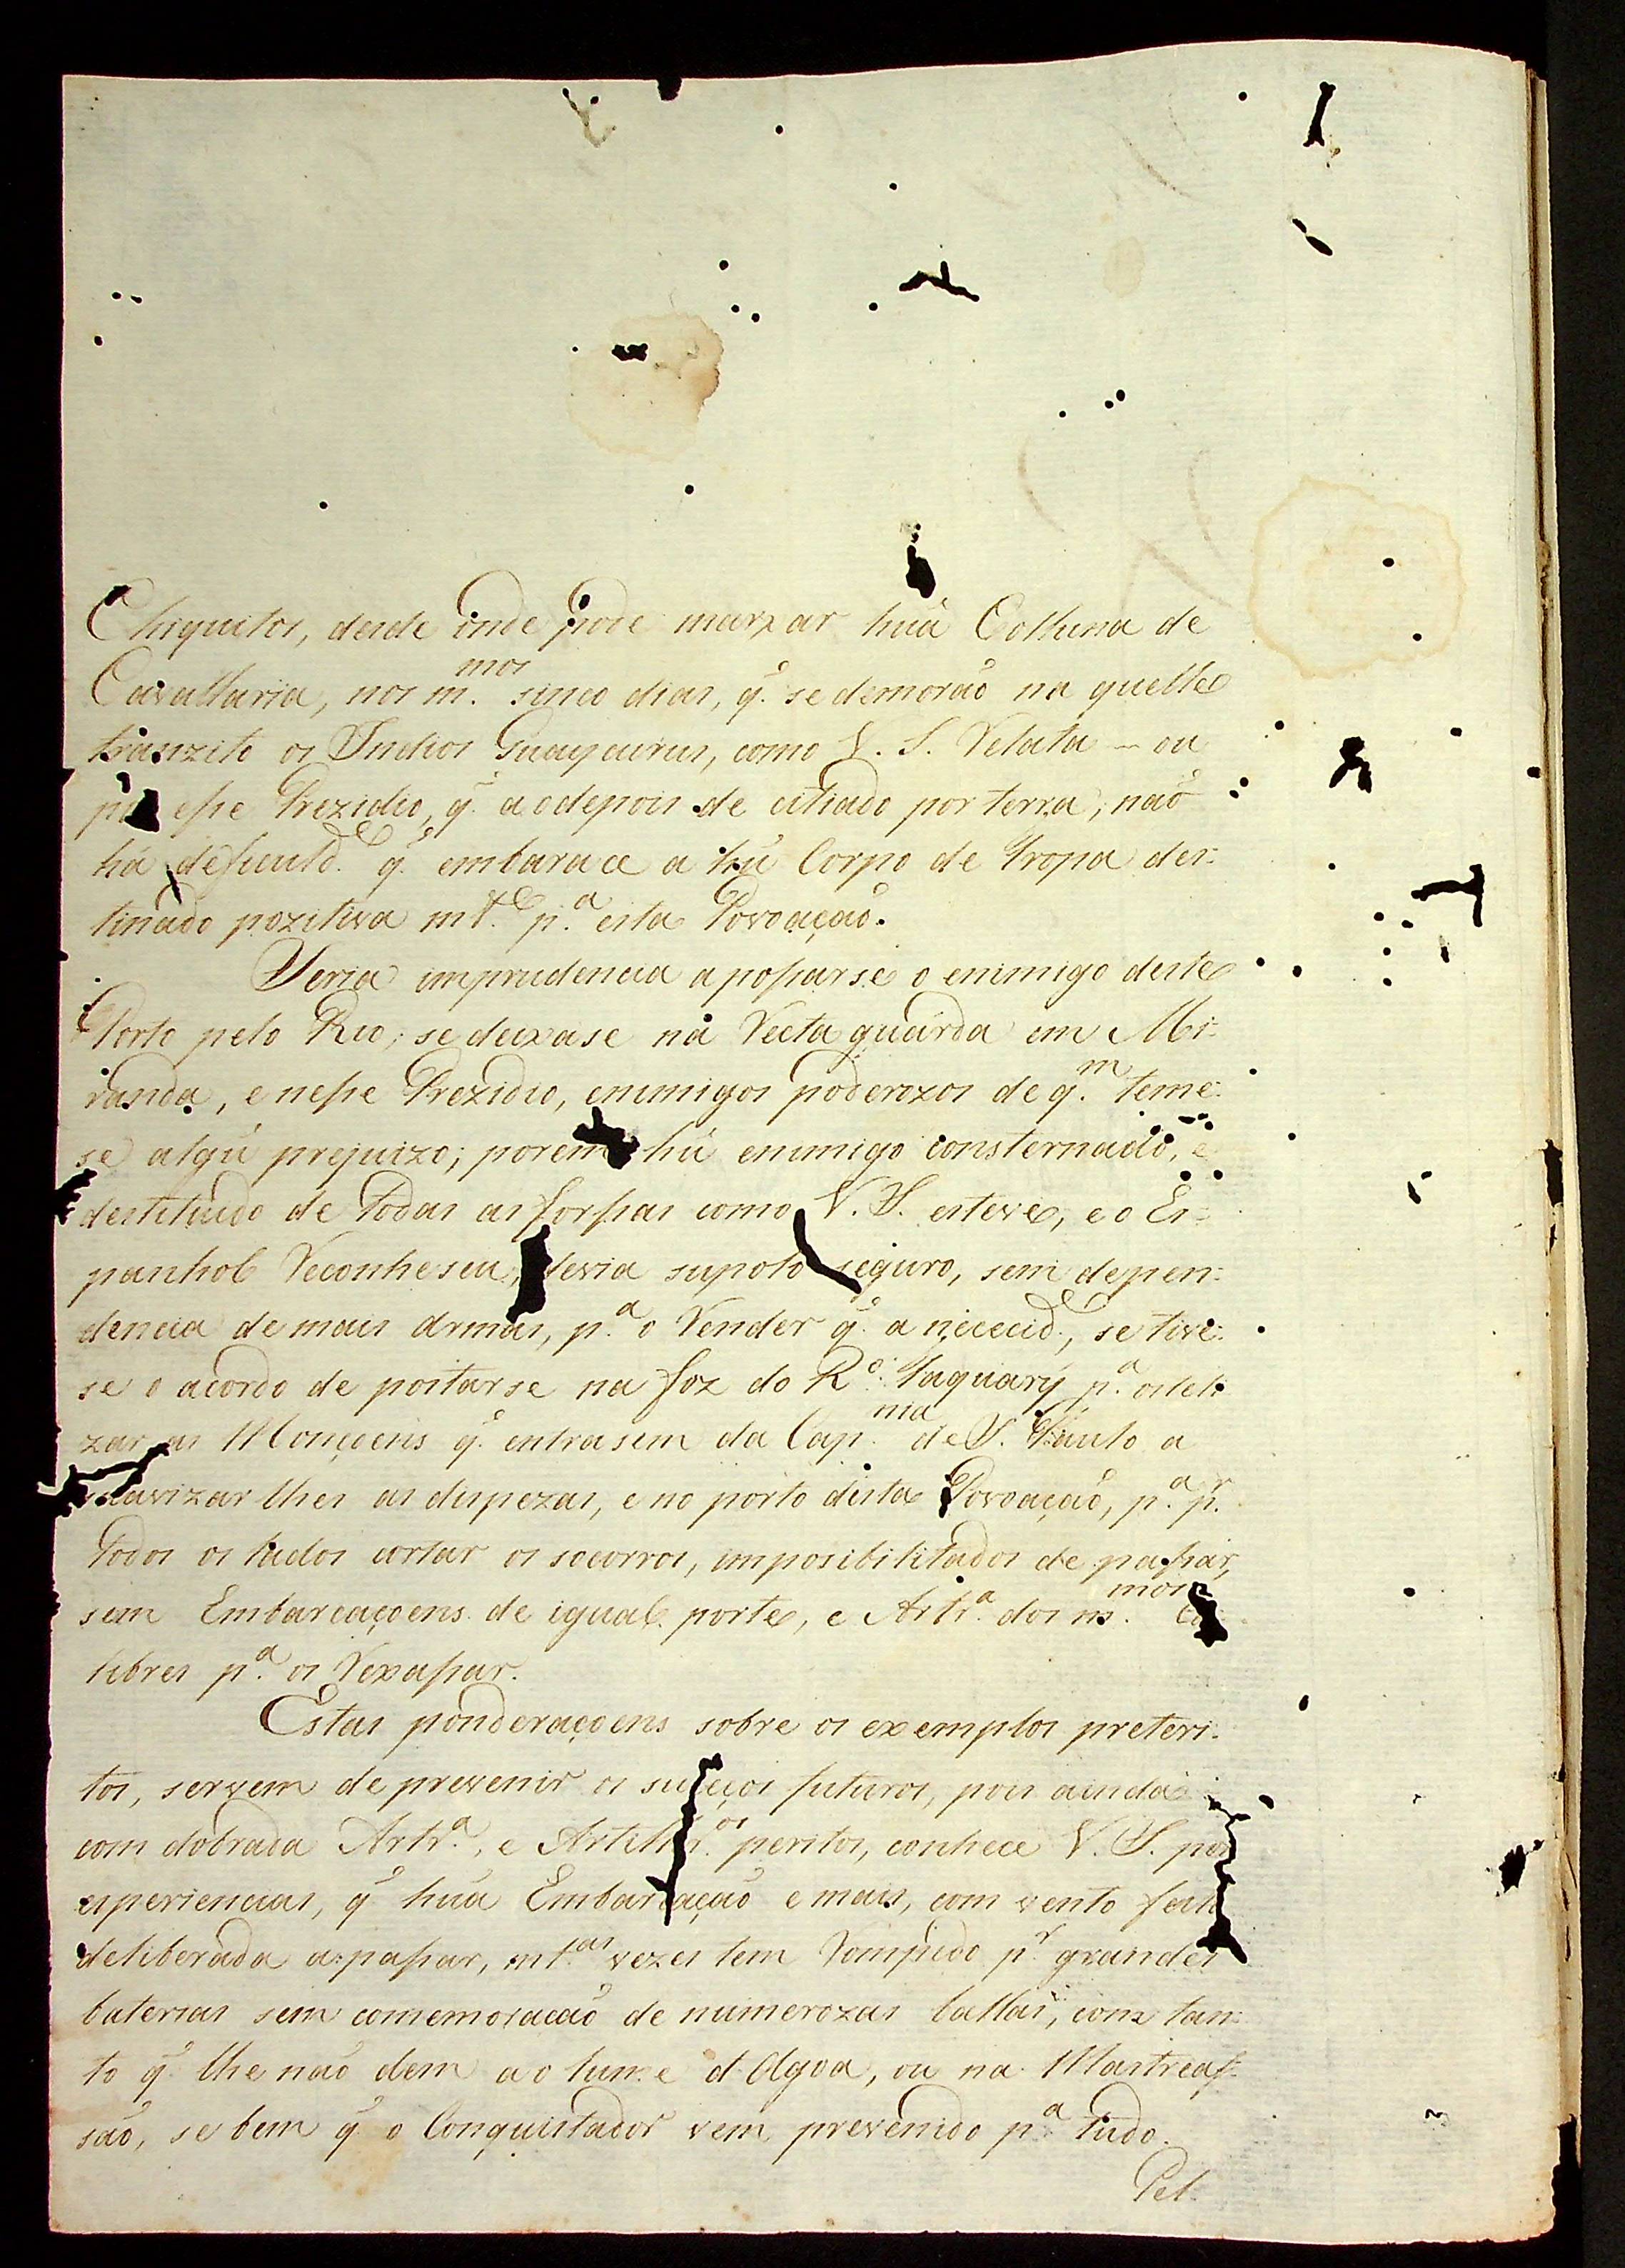 Chiquitos, desde onde pode marxar huã Colluna de
Cavallaria, nos m.mos sinco dias, q̃. se demorão na quelle
tranzito os Indios Guaycurus, como V. S. Relata — ou
essе Prezidio, q̃. ao depois de citiado por terra, não
há deficuld.e q̃. embarace a hũ Corpo de Tropa des:
tinado pozitiva mt.e p.a esta Povoação.
Seria imprudencia apossarse o enimigo deste
Porto pelo Rio; se deixase na Recta guarda em Mi:
randa, e nesse Prezidio, enimigos poderozos de q.m teme:
se algũ prejuizo; porem hũ enimigo consternado, e
destituido de todas as forssas como V. S. esteve, e o Es:
panhol Reconheseu, devia supolo seguro, sem depen:
dencia de mais armas, p.a o Render q̃. a nececid.e, se tive:
se o acordo de postarse na foz do R.o Taquarÿ p.a osteli
zar as Monçoens q̃. entrasem da Cap.nia de S. Paulo a
suavizar lhes as despezas, e no porto desta Povoação, p.a p.r
todos os lados cortar os socorros, imposibilitados de passar,
sem Embarcaçoens de igual porte, e Artr.a dos m.mos Ca
libres p.a os Rexassar.
Estas ponderaçoens sobre os exemplos preteri:
tos, servem de prevenir os suceços futuros, pois ainda
com dobrada Artr.a, e Artilhr.os peritos, conhece V. S. por
esperiencias, q̃ huã Embarcação e mais, com vento feito
deliberada a passar, mt.as vezes tem Rompido p.r grandes
baterias sem comemoração de numerozas ballas, com tan:
to q̃ lhe não dem ao lume d'Agoa, ou na Mastreas:
são, se bem q̃ o Conquistador vem prevenido p.a tudo.
Pel